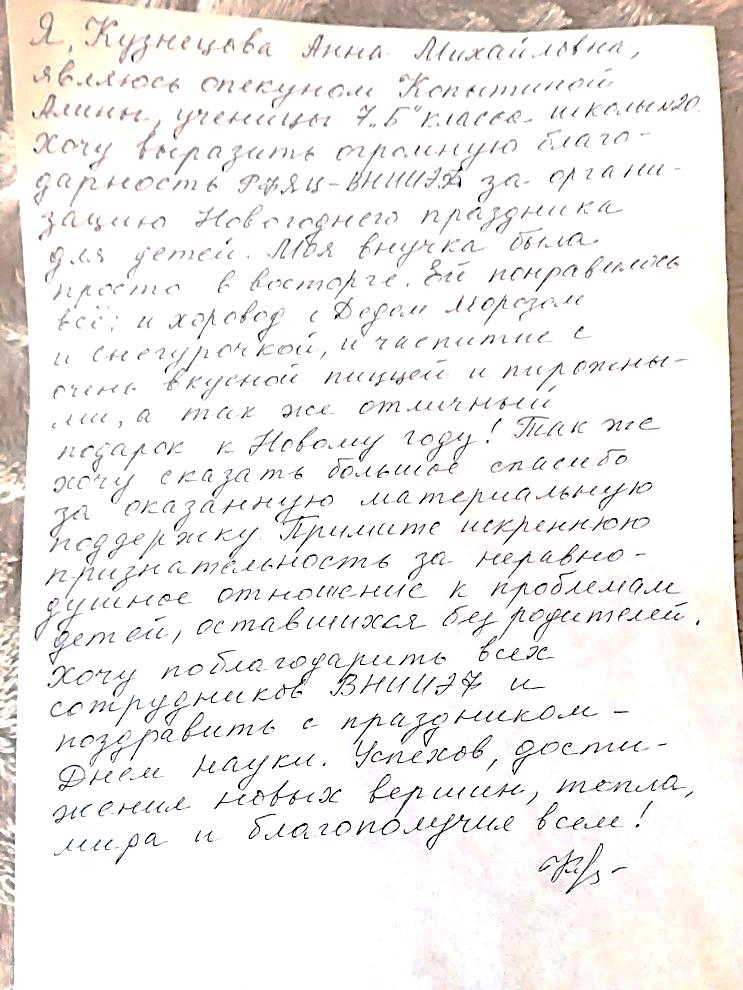 Я, Кузнецова Анна Михайловна,
являюсь опекуном Копытиной
Алины, ученицы 7„Б" класса школы №20.
Хочу выразить огромную благо-
дарность РФЯЦ-ВНИИЭФ за органи-
зацию Новогоднего праздника
для детей. Моя внучка была
просто в восторге. Ей понравилось
всё: и хоровод с Дедом Морозом
и снегурочкой, и чаепитие с
очень вкусной пиццей и пирожны-
ми, а так же отличный
подарок к Новому году! Так же
хочу сказать большое спасибо
за оказанную материальную
поддержку. Примите искреннюю
признательность за неравно-
душное отношение к проблемам
детей, оставшихся без родителей.
Хочу поблагодарить всех
сотрудников ВНИИЭФ и
поздравить с праздником –
Днем науки. Успехов, дости-
жения новых вершин, тепла,
мира и благополучия всем!